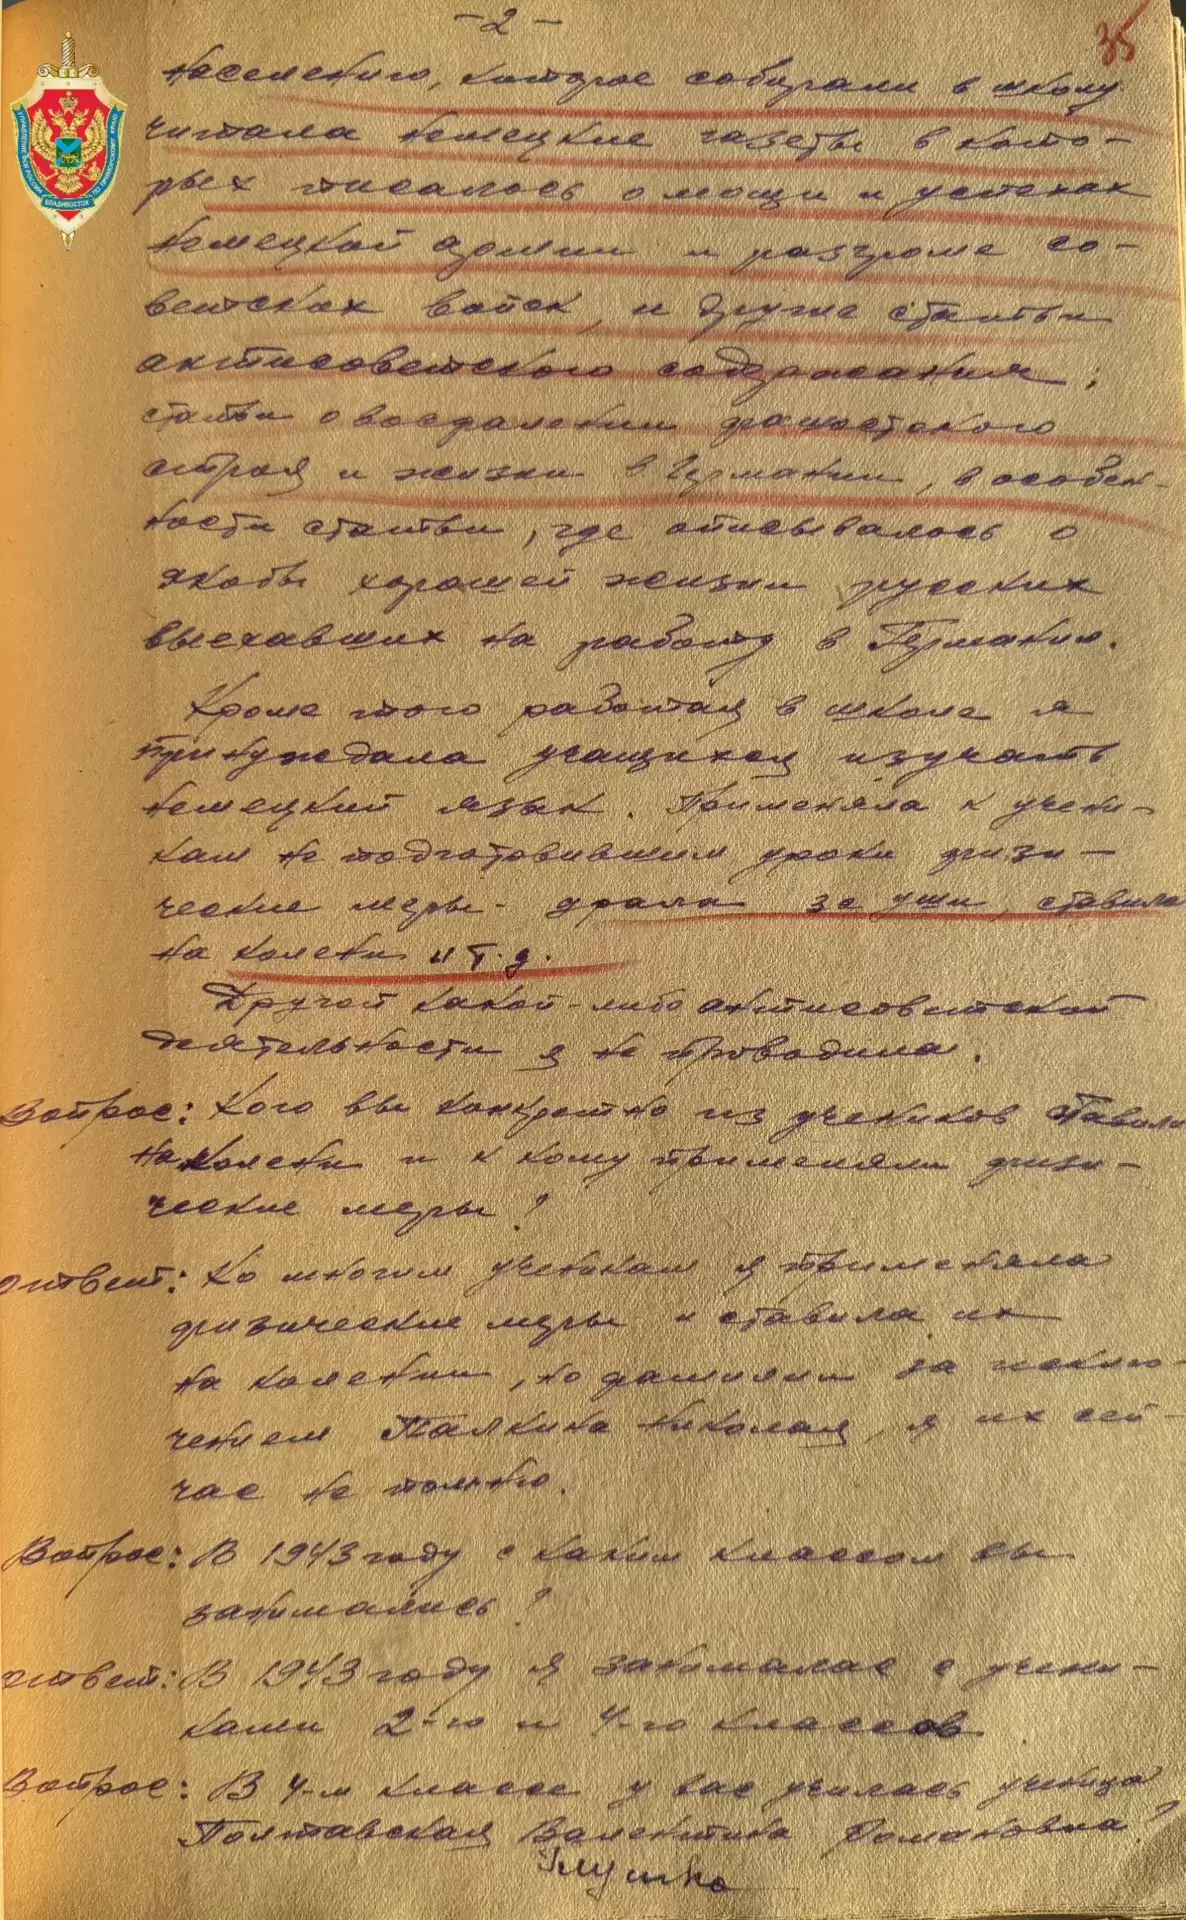 - 2 -
35
населению, которое собирали в школу
читала немецкие газеты в кото-
рых писалось о мощи и успехах
немецкой армии и разгроме со-
ветских войск, и друже статьи
антисоветского содержания;
статьи о восхвалении фашистского
строя и жизни в Германии, в особен-
ности статьи, где описывалось о
якобы хорошей жизни русских
выехавших на работу в Германию.
Кроме того работая в школе я
принуждала учащихся изучать
немецкий язык. Применяла к учени-
кам не подготовившим уроки физи-
ческие меры - драла за уши, ставила
на колени и т.д.
Другой какой-либо антисоветской
деятельности я не проводила.
Вопрос: Кого вы конкретно из учеников ставили
на колени и к кому применяли физи-
ческие меры?
Ответ: Ко многим ученикам я применяла
физические меры и ставила их
на колени, но фамилии за исклю-
чением Палкина Николая, я их сей-
час не помню.
Вопрос: В 1943 году с каким классом вы
занимались?
Ответ: В 1943 году я занималас с учени-
ками 2-го и 4-го классов
Вопрос: В 4-м классе у вас училась ученица
Полтавская Валентина Романовна?
УПРАВЛЕНИЕ ФСБ РОССИИ ПО ПРИМОРСКОМУ КРАЮ
ВЛАДИВОСТОК